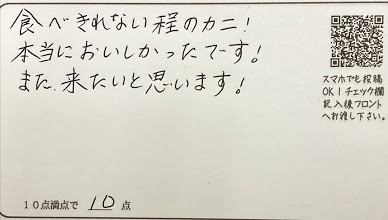 食べきれない程のカニ!
本当においしかったでーす!
また.来たいと思います!
スマホでも投稿
OK!チェック欄
記入後フロント
へお渡し下さい。
10点満点で 10 点